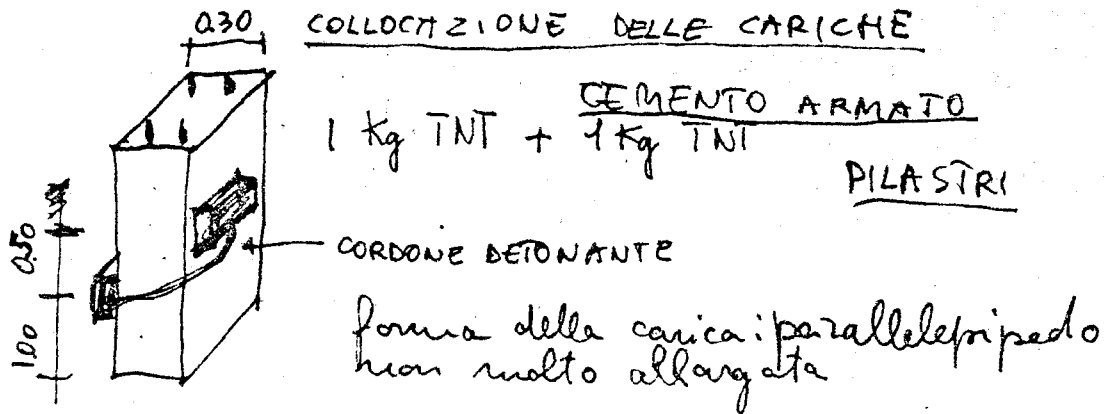 0.30
COLLOCAZIONE DELLE CARICHE
CEMENTO ARMATO
1 Kg TNT + 1 Kg TNT
PILASTRI
0.50
CORDONE DETONANTE
1.00
forma della carica: parallelepipedo
non molto allargata